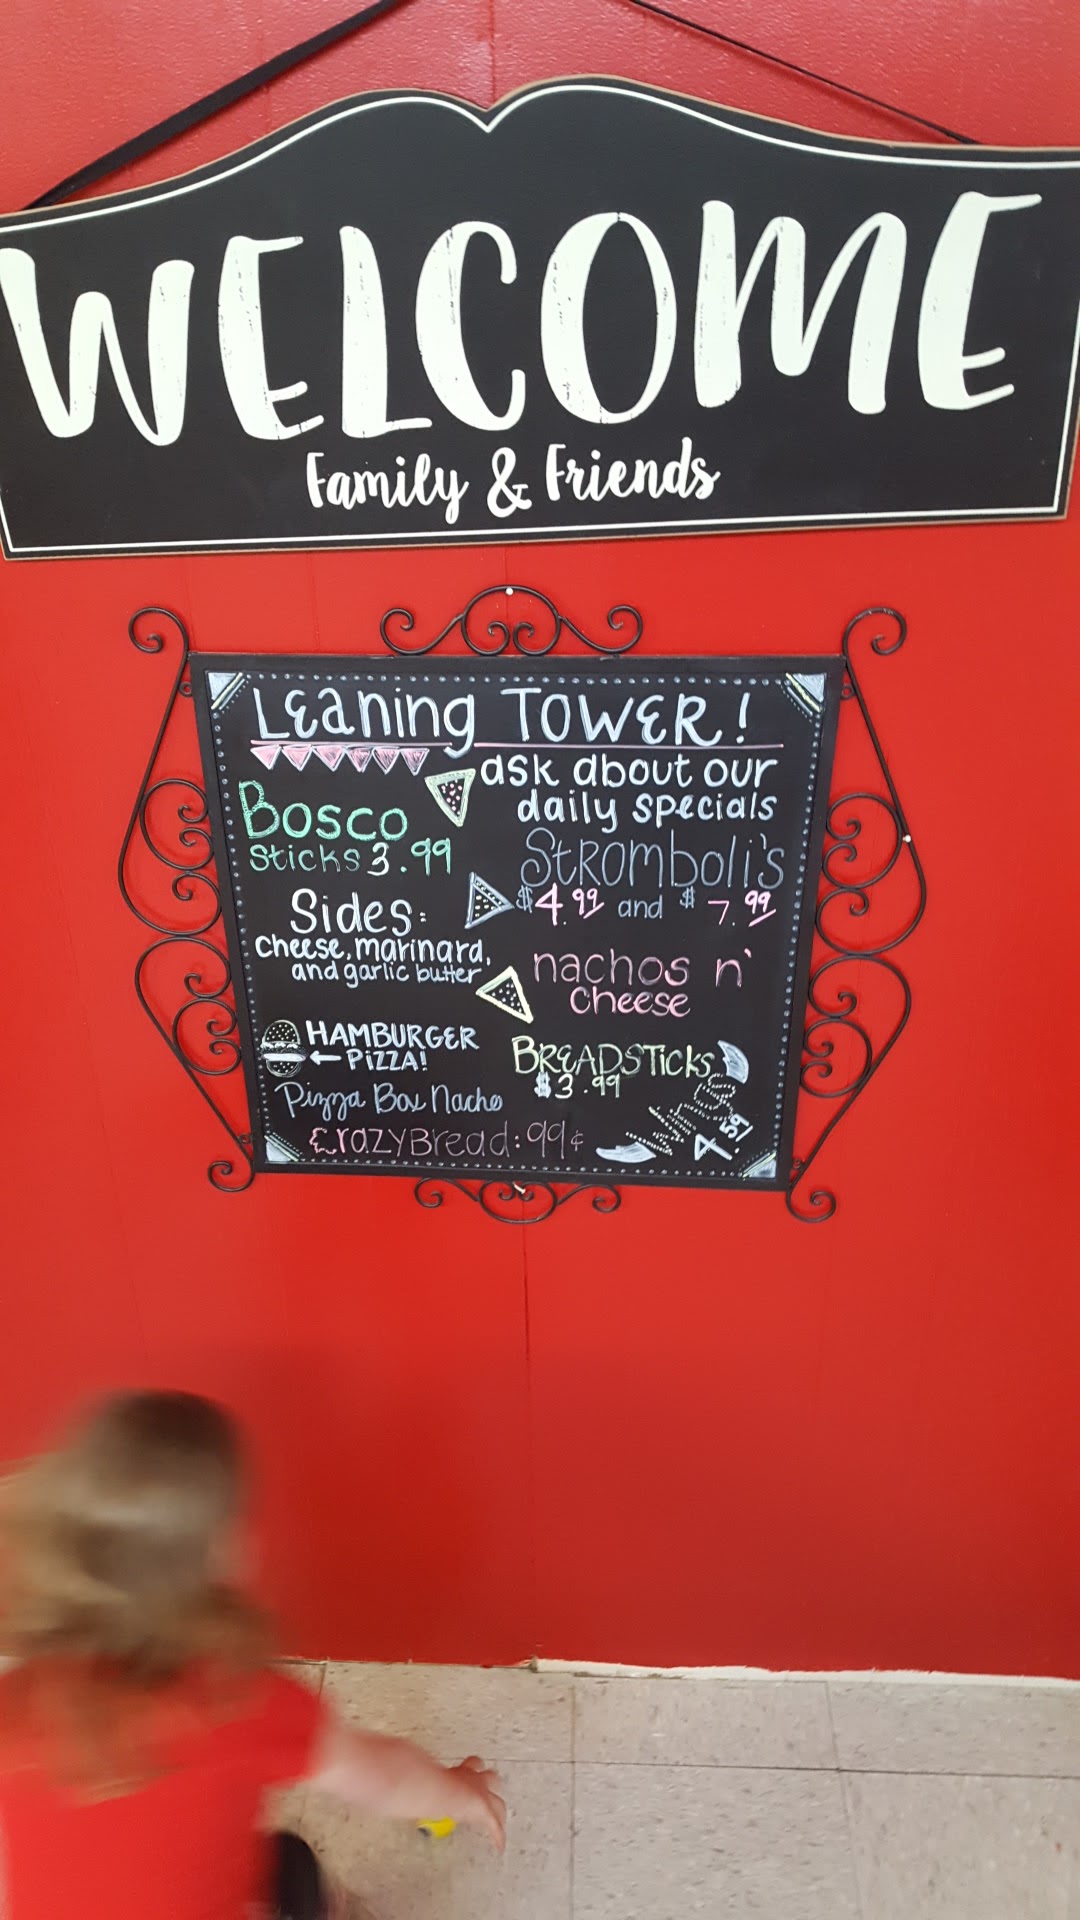 WELCOME
Family & Friends
Leaning TOWER!
ask about our
daily specials
Bosco
sticks 3.99
Stromboli's
$4.99 and $7.99
Sides:
cheese, marinara,
and garlic butter
nachos n'
cheese
HAMBURGER
PIZZA!
BREADSTICKS
$3.99
Pizza Box Nacho
CrazyBread: 99¢
4.59